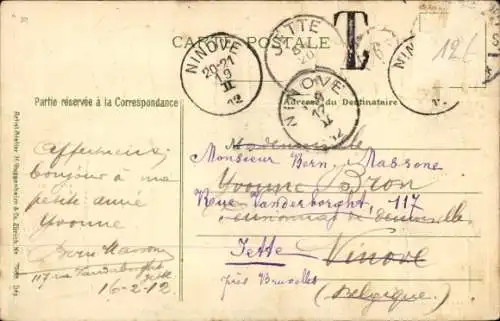 CARTE POSTALE
T
12€
NINOVE
20-21
9
II
12
JETTE
20
NINOVE
9
II
12
NIN
Partie réservée à la Correspondance
Adresse du Destinataire
Affectueux
bonjour à ma
petite amie
Yvonne
117 rue Vanderborght
Jette
16-2-12
Mademoiselle
Monsieur Bern. Massone
Yvonne Bron
Rue Vanderborght, 117
Jette Ninove
près Bruxelles
(Belgique)